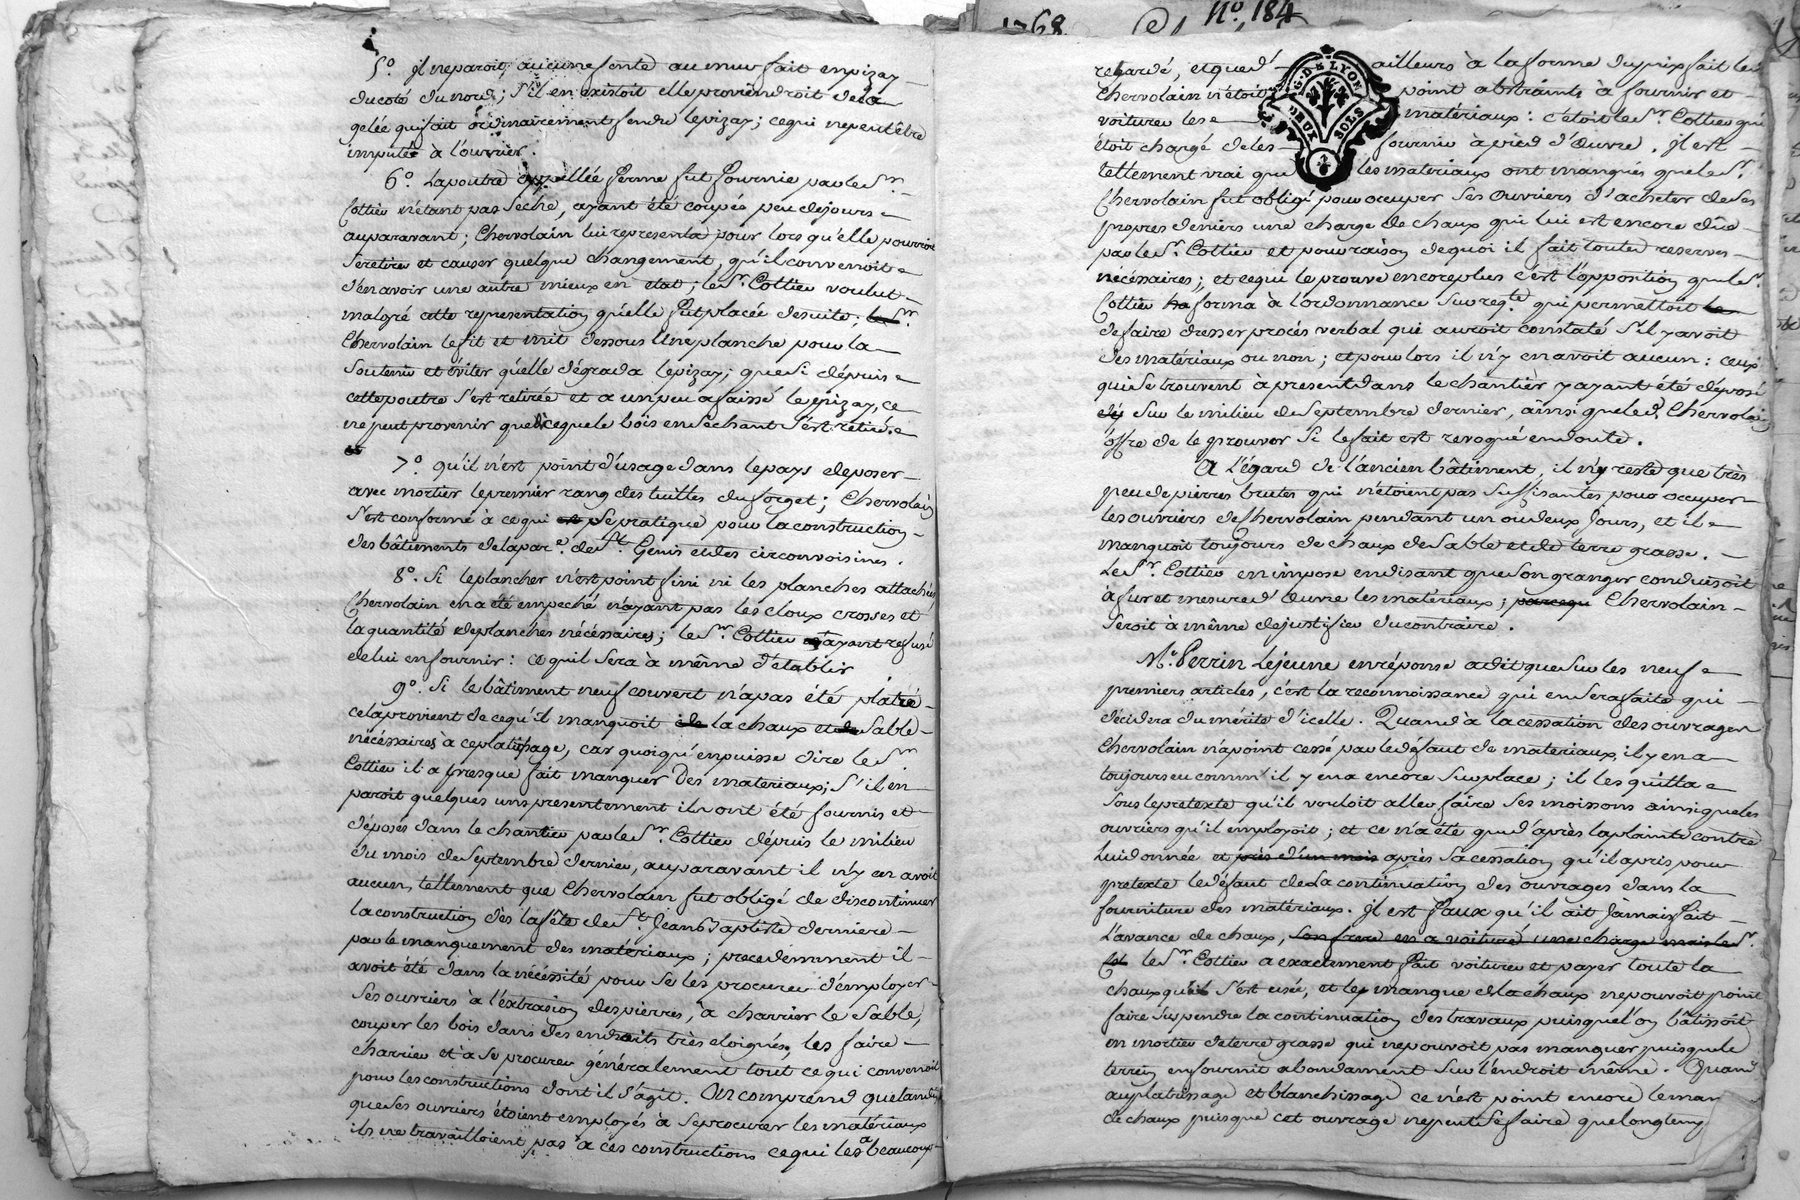 5.° Il ne paroit, aucune fente au mur fait en pizay
du coté du nord; s'il en existoit elle proviendroit de la
gelée qui fait ordinairement fendre le pizay; ce qui ne peut être
imputée à l'ouvrier.
6.° La poutre appellée ferme fut fournie par le S.r
Cottier n'étant pas séche, ayant été coupée peu de jours
auparavant; Chervolain lui representa pour lors qu'elle pourroit
se retirer et causer quelque changement, qu'il convenoit
d'en avoir une autre mieux en etat; le S.r Cottier voulut
malgré cette representation qu'elle fut placée de suite, le S.r
Chervolain le fit et mit dessous une planche pour la
soutenir et éviter qu'elle dégrada le pizay; que si dépuis
cette poutre s'est retirée et a un peu afaissé le pizay, ce
ne peut provenir que de ce que le bois en séchant s'est retiré.
7.° qu'il n'est point d'usage dans le pays de poser
avec mortier le premier rang des tuilles du forget; Chervolain
s'est conformé à ce qui se pratique pour la construction
des bâtiments de la par.e de S.t Genis et des circonvoisines.
8.° Si le plancher n'est point fini ni les planches attachées
Chervolain en a été empeché n'ayant pas les cloux crosses et
la quantité de planches nécéssaires; le S.r Cottier ayant refusé
de lui en fournir: ce qu'il sera à même d'établir
9.° Si le bâtiment neuf couvert n'a pas été platré
cela provient de ce qu'il manquoit de la chaux et du sable
nécéssaires à ce platissage, car quoiqu'en puisse dire le S.r
Cottier il a presque fait manquer des materiaux; S'il en
paroit quelques uns presentement ils ont été fournis et
déposés dans le chantier par le S.r Cottier dépuis le milieu
du mois de septembre dernier, auparavant il n'y en avoit
aucun, tellement que Chervolain fut obligé de discontinuer
la construction dès la fête de S.t Jean Baptiste derniere
par le manquement des matériaux; precedemment il
avoit été dans la nécéssité pour se les procurer d'employer
ses ouvriers à l'extrasion des pierres, à charrier le sable,
couper les bois dans des endroits très eloignés, les faire
charrier et à se procurer généralement tout ce qui convenoit
pour les constructions dont il s'agit. On comprend que tandis
que ses ouvriers étoient employés à se procurer les matériaux
ils ne travailloient pas à ces constructions ce qui les a beaucoup
1768 N.° 184
retardé, et que d' ailleurs à la forme du prix fait led
Chervolain n'étoit point abstraints à fournir et
voiturer les matériaux: c'étoit le S.r Cottier qui
étoit chargé de les fournir à pied d'œuvre. Il est
G. DE LYON
HUIT SOLS
tellement vrai que les materiaux ont manqués que le S.r
Chervolain fut obligé pour occuper ses ouvriers d'acheter de ses
propres deniers une charge de chaux qui lui est encore dûe
par le S.r Cottier et pour raison de quoi il fait toutes reserves
nécéssaires; et ce qui le prouve encore plus c'est l'opposition que le S.r
Cottier forma à l'ordonnance sur req.te qui permettoit
de faire dresser procès verbal qui auroit constaté s'il y avoit
des matériaux ou non; et pour lors il n'y en avoit aucun: ceux
qui se trouvent à present dans le chantier y ayant été déposé
sur le milieu de septembre dernier, ainsi que led. Chervolain
offre de le prouver si le fait est revoqué en doute.
A l'égard de l'ancien bâtiment, il n'y reste que très
peu de pierres brutes qui n'étoient pas suffisantes pour occuper
les ouvriers de Chervolain pendant un ou deux jours, et il
manquoit toujours de chaux de sable et de terre grasse.
Le S.r Cottier en impose en disant que son granger conduisoit
à fur et mesure d'œuvre les matériaux; parcequ Chervolain
seroit à même de justifier du contraire.
M.e Perrin Lejeune en réponse a dit que sur les neuf
premiers articles, c'est la reconnoissance qui en sera faite qui
décidera du mérite d'icelle. Quand à la cessation des ouvrages
Chervolain n'a point cessé par le défaut de materiaux, il y en a
toujours eu comm' il y en a encore sur place; il les quitta
sous le pretexte qu'il vouloit aller faire ses moissons ainsi que les
ouvriers qu'il employoit; et ce n'a été que d'après la plainte contre
lui donnée et près d'un mois après sa cessation qu'il a pris pour
pretexte le défaut de la continuation des ouvrages dans la
fourniture des matériaux. Il est faux qu'il ait jamais fait
l'avance de chaux, son frere en a voituré une charge mais le S.r
Cot le S.r Cottier a exactement fait voiturer et payer toute la
chaux qu'il s'est usée, et le manque de la chaux ne pouvoit point
faire suspendre la continuation des travaux puisque l'on bâtissoit
en mortier de terre grasse qui ne pouvoit pas manquer puisque le
terrein en fournit abondament sur l'endroit même. Quand
au platissage et blanchissage ce n'est point encore le man
de chaux puisque cet ouvrage ne peut se faire que longtems